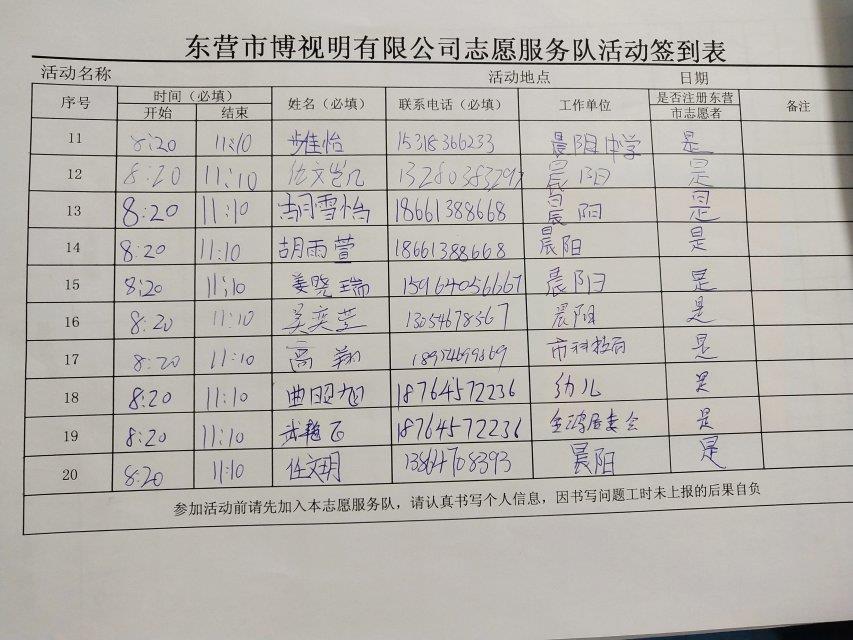 东营市博视明有限公司志愿服务队活动签到表
活动名称 活动地点 日期
序号 时间（必填） 姓名（必填） 联系电话（必填） 工作单位 是否注册东营市志愿者 备注
开始 结束
11 8:20 11:10 步佳怡 15318366233 晨阳中学 是
12 8:20 11:10 13280383297 晨阳 是
13 8:20 11:10 胡雪怡 18661388668 晨阳 是
14 8:20 11:10 胡雨萱 18661388668 晨阳 是
15 8:20 11:10 姜晓瑞 15964056667 晨阳 是
16 8:20 11:10 吴奕萱 晨阳 是
17 8:20 11:10 高翔 是
18 8:20 11:10 曲昭旭 18764572236 幼儿 是
19 8:20 11:10 武艳飞 18764572236 居委会 是
20 8:20 11:10 任文玥 13864708393 晨阳 是
参加活动前请先加入本志愿服务队，请认真书写个人信息，因书写问题工时未上报的后果自负